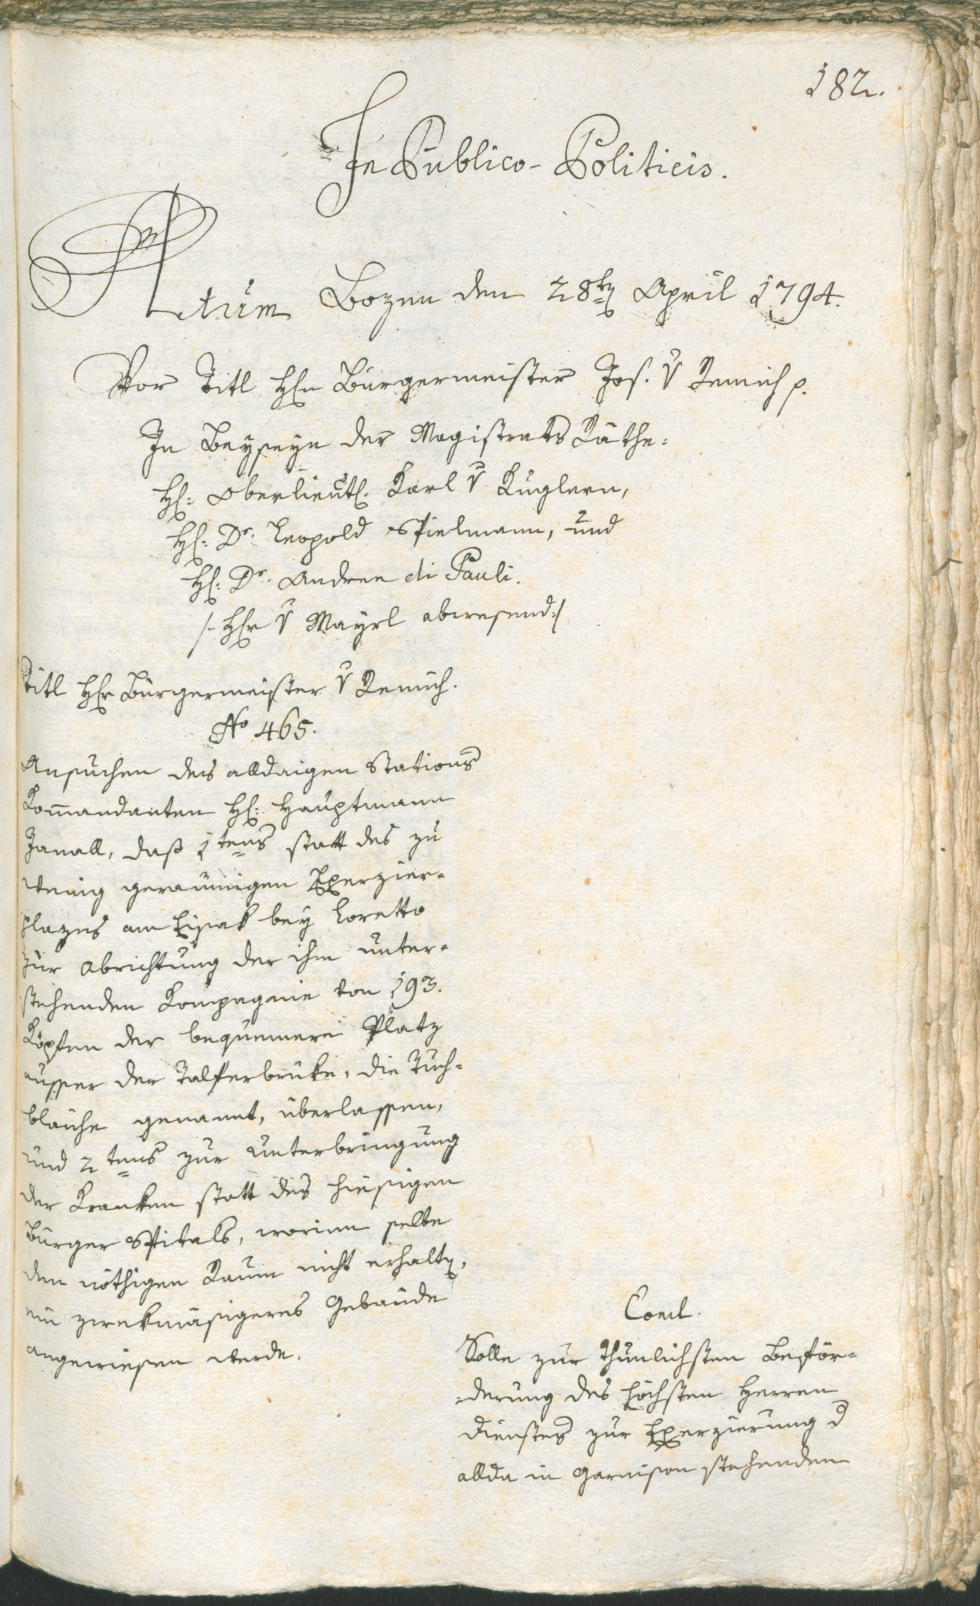 182.
In Publico-Politicis.
Actum Bozen den 28ten April 1794.
Vor Titl Hhn Bürgermeister Jos. v Remich p.
In Beyseyn der Magistrats Räthe.
H: Oberlieut. Karl v Kuglern,
H: Dr. Leopold Spielmann, und
H: Dr. Andree di Pauli.
/: Hhr v Mayrl abwesend :/
Titl Hhr Bürgermeister v Remich.
No 465.
Ansuchen des alldaigen Stations
Kom̅andanten H: Hauptmann
daß 1tens statt des zu
wenig geräumigen Exerzier-
plazes am Eisak bey Loretto
zur Abrichtung der ihm unter-
stehenden Kompagnie von 193.
Köpfen der bequemere Platz
ausser der Talferbrüke, die Tuch-
blaiche genannt, überlassen,
und 2tens zur Unterbringung
der Kranken statt des hiesigen
Bürger Spitals, worinn selbe
den nöthigen Raum nicht erhalten,
ein zwekmäsigeres Gebäude
angewiesen werde.
Concl.
Solle zur thunlichsten Beför-
derung des höchsten Herren
Dienstes zur Exerzierung d
allda in Garnison stehenden